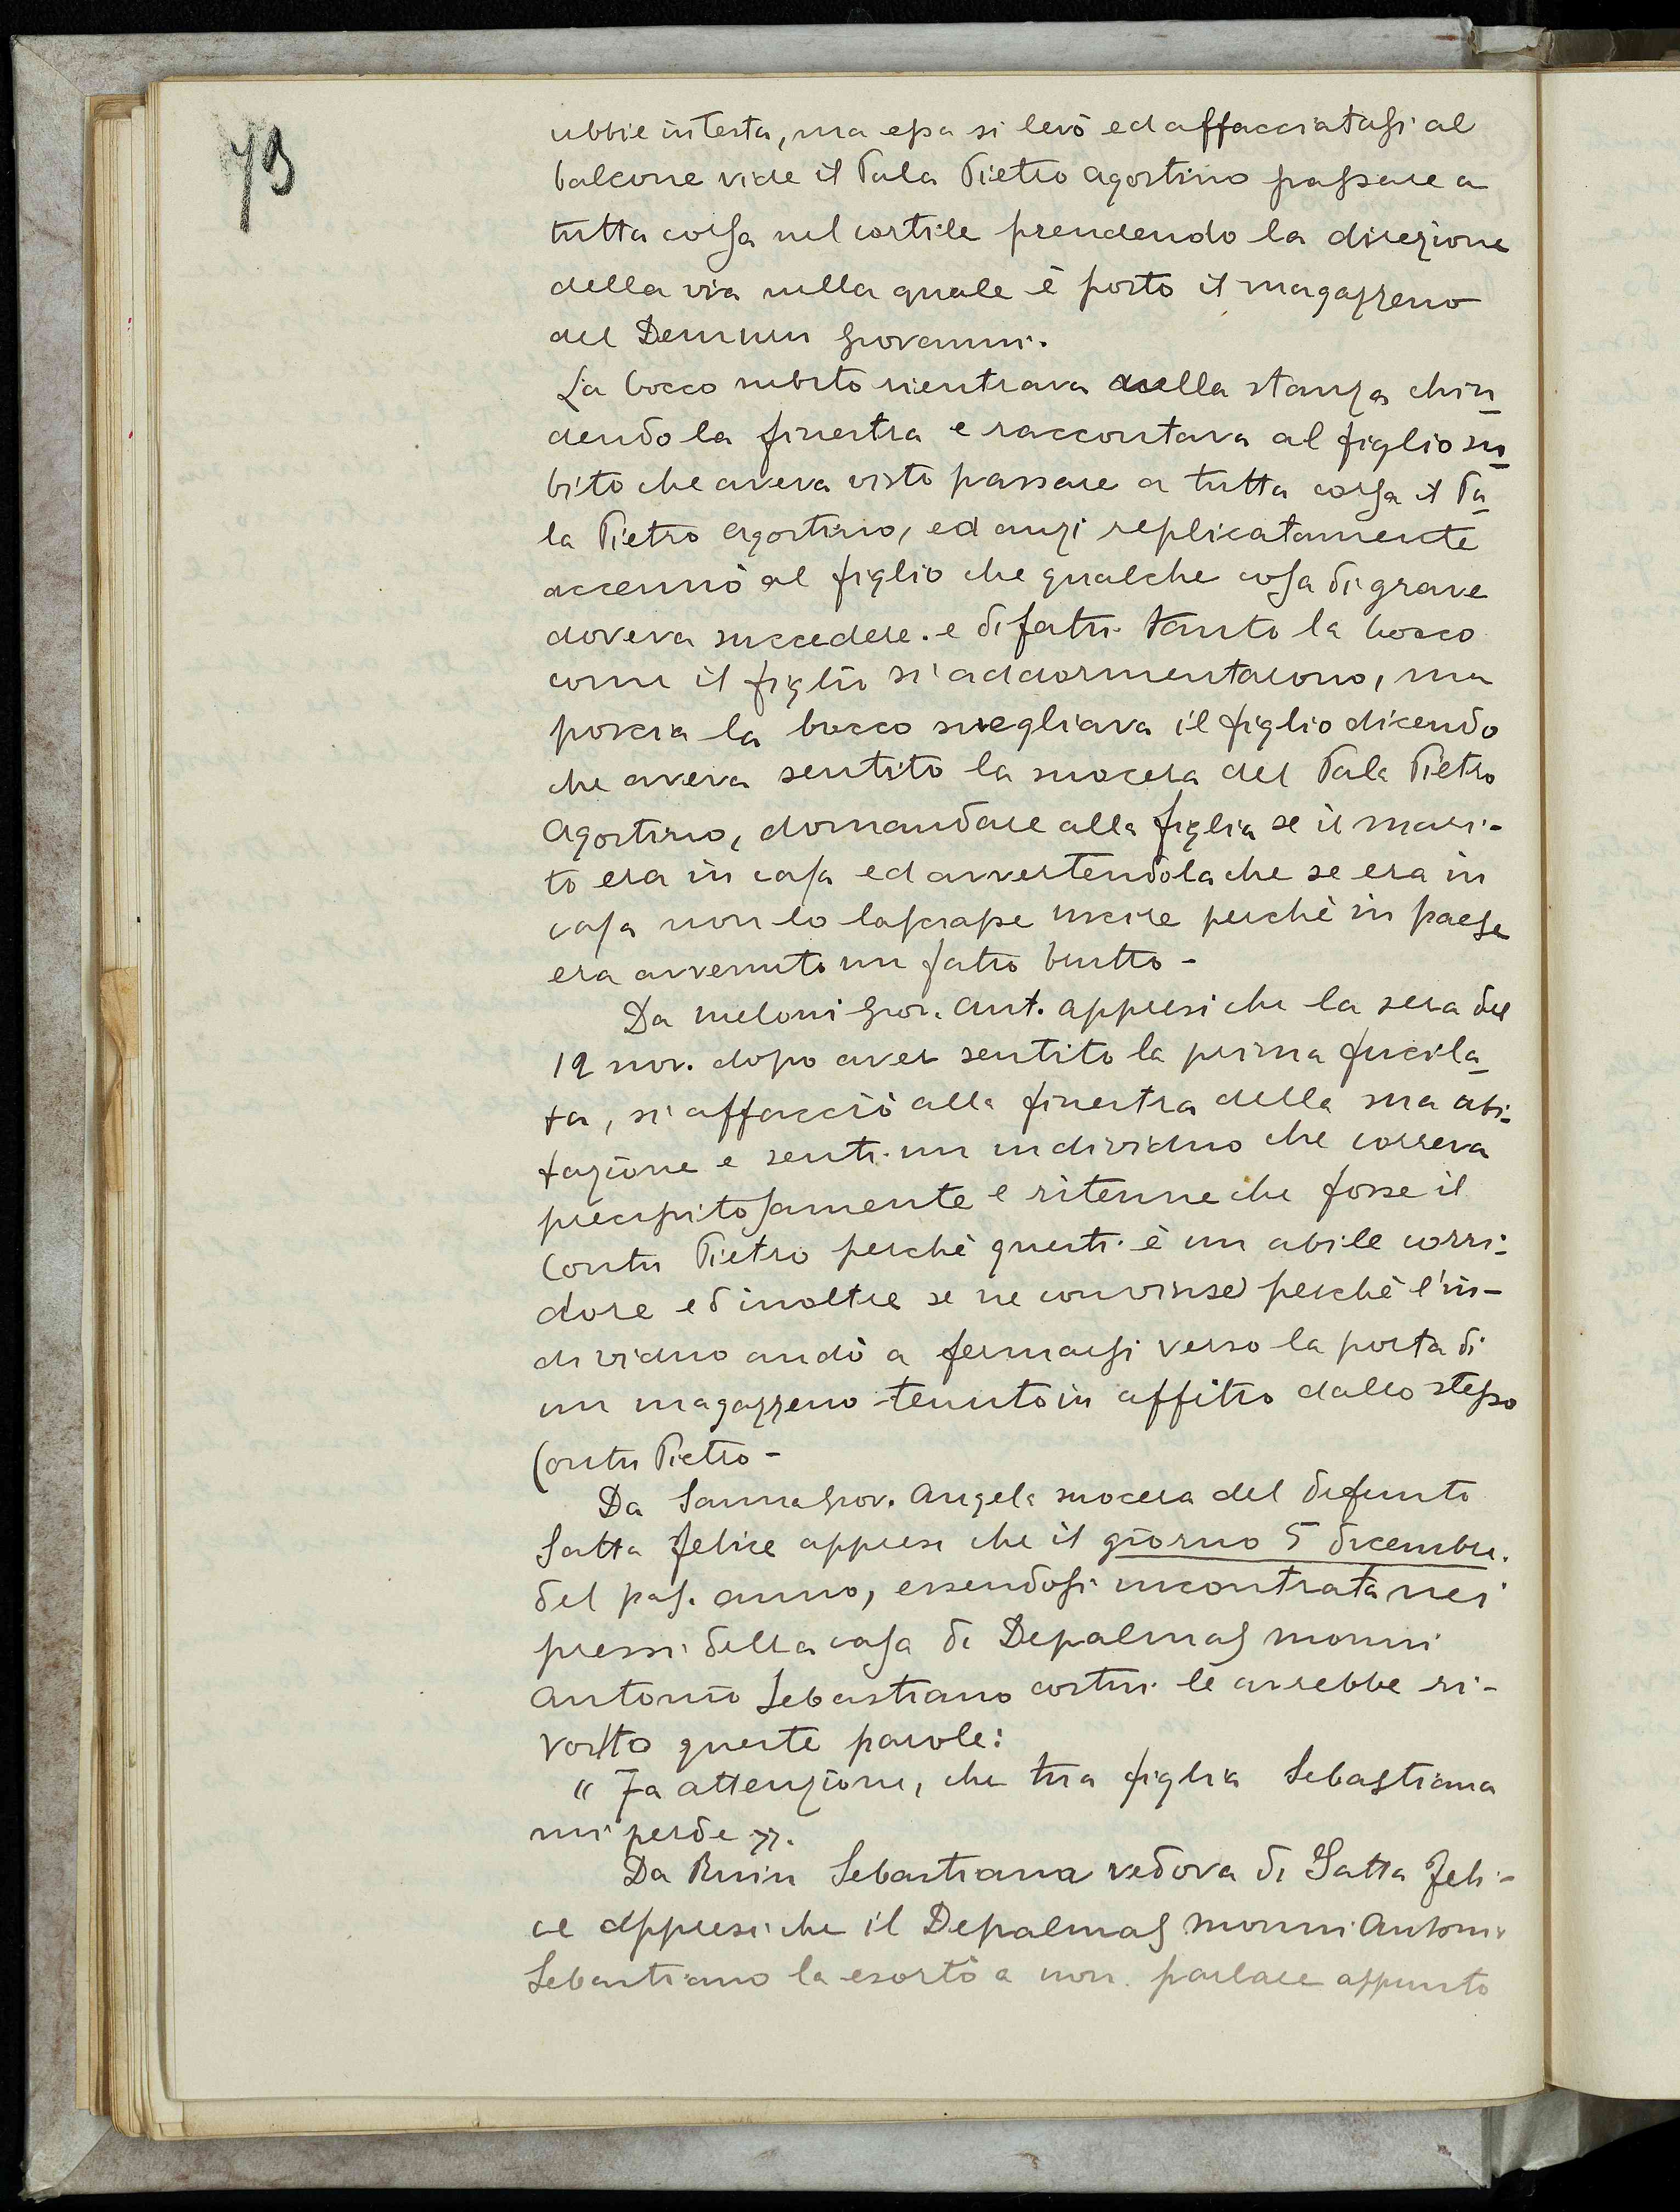 79
ubbie in testa, ma essa si levò ed affacciatasi al
balcone vide il Pala Pietro Agostino passare a
tutta corsa nel cortile prendendo la direzione
della via nella quale è posto il magazzeno
del Demuru Giovanni.
La bocco subito rientrava nella stanza chiu_
dendo la finestra e raccontava al figlio su_
bito che aveva visto passare a tutta corsa il Pa_
la Pietro Agostino, ed anzi replicatamente
accennò al figlio che qualche cosa di grave
doveva succedere. e difatti tanto la bocco
come il figlio si addormentarono, ma
poscia la bocco svegliava il figlio dicendo
che aveva sentito la suocera del Pala Pietro
Agostino, domandare alla figlia se il mari-
to era in casa ed avvertendola che se era in
casa non lo lasciasse uscire perchè in paese
era avvenuto un fatto brutto -
Da meloni Giov. Ant. appresi che la sera del
12 nov. dopo aver sentito la prima fucila_
ta, si affacciò alla finestra della sua abi-
tazione e sentì un individuo che correva
precipitosamente e ritenne che fosse il
Contu Pietro perchè questi è un abile corri-
dore ed inoltre se ne convinse perchè l'in-
dividuo andò a fermarsi verso la porta di
un magazzeno tenuto in affitto dallo stesso
Contu Pietro -
Da Sanna Giov. Angela suocera del defunto
Satta Felice appresi che il giorno 5 dicembre.
del pas. anno, essendosi incontrata nei
pressi della casa di Depalmas monni
Antonio Sebastiano costui le avrebbe ri-
volto queste parole:
" Fa attenzione, che tua figlia Sebastiana
mi perde ".
Da Ruiu Sebastiana vedova di Satta Feli-
ce appresi che il Depalmas monni Antonio
Sebastiano la esortò a non parlare appunto